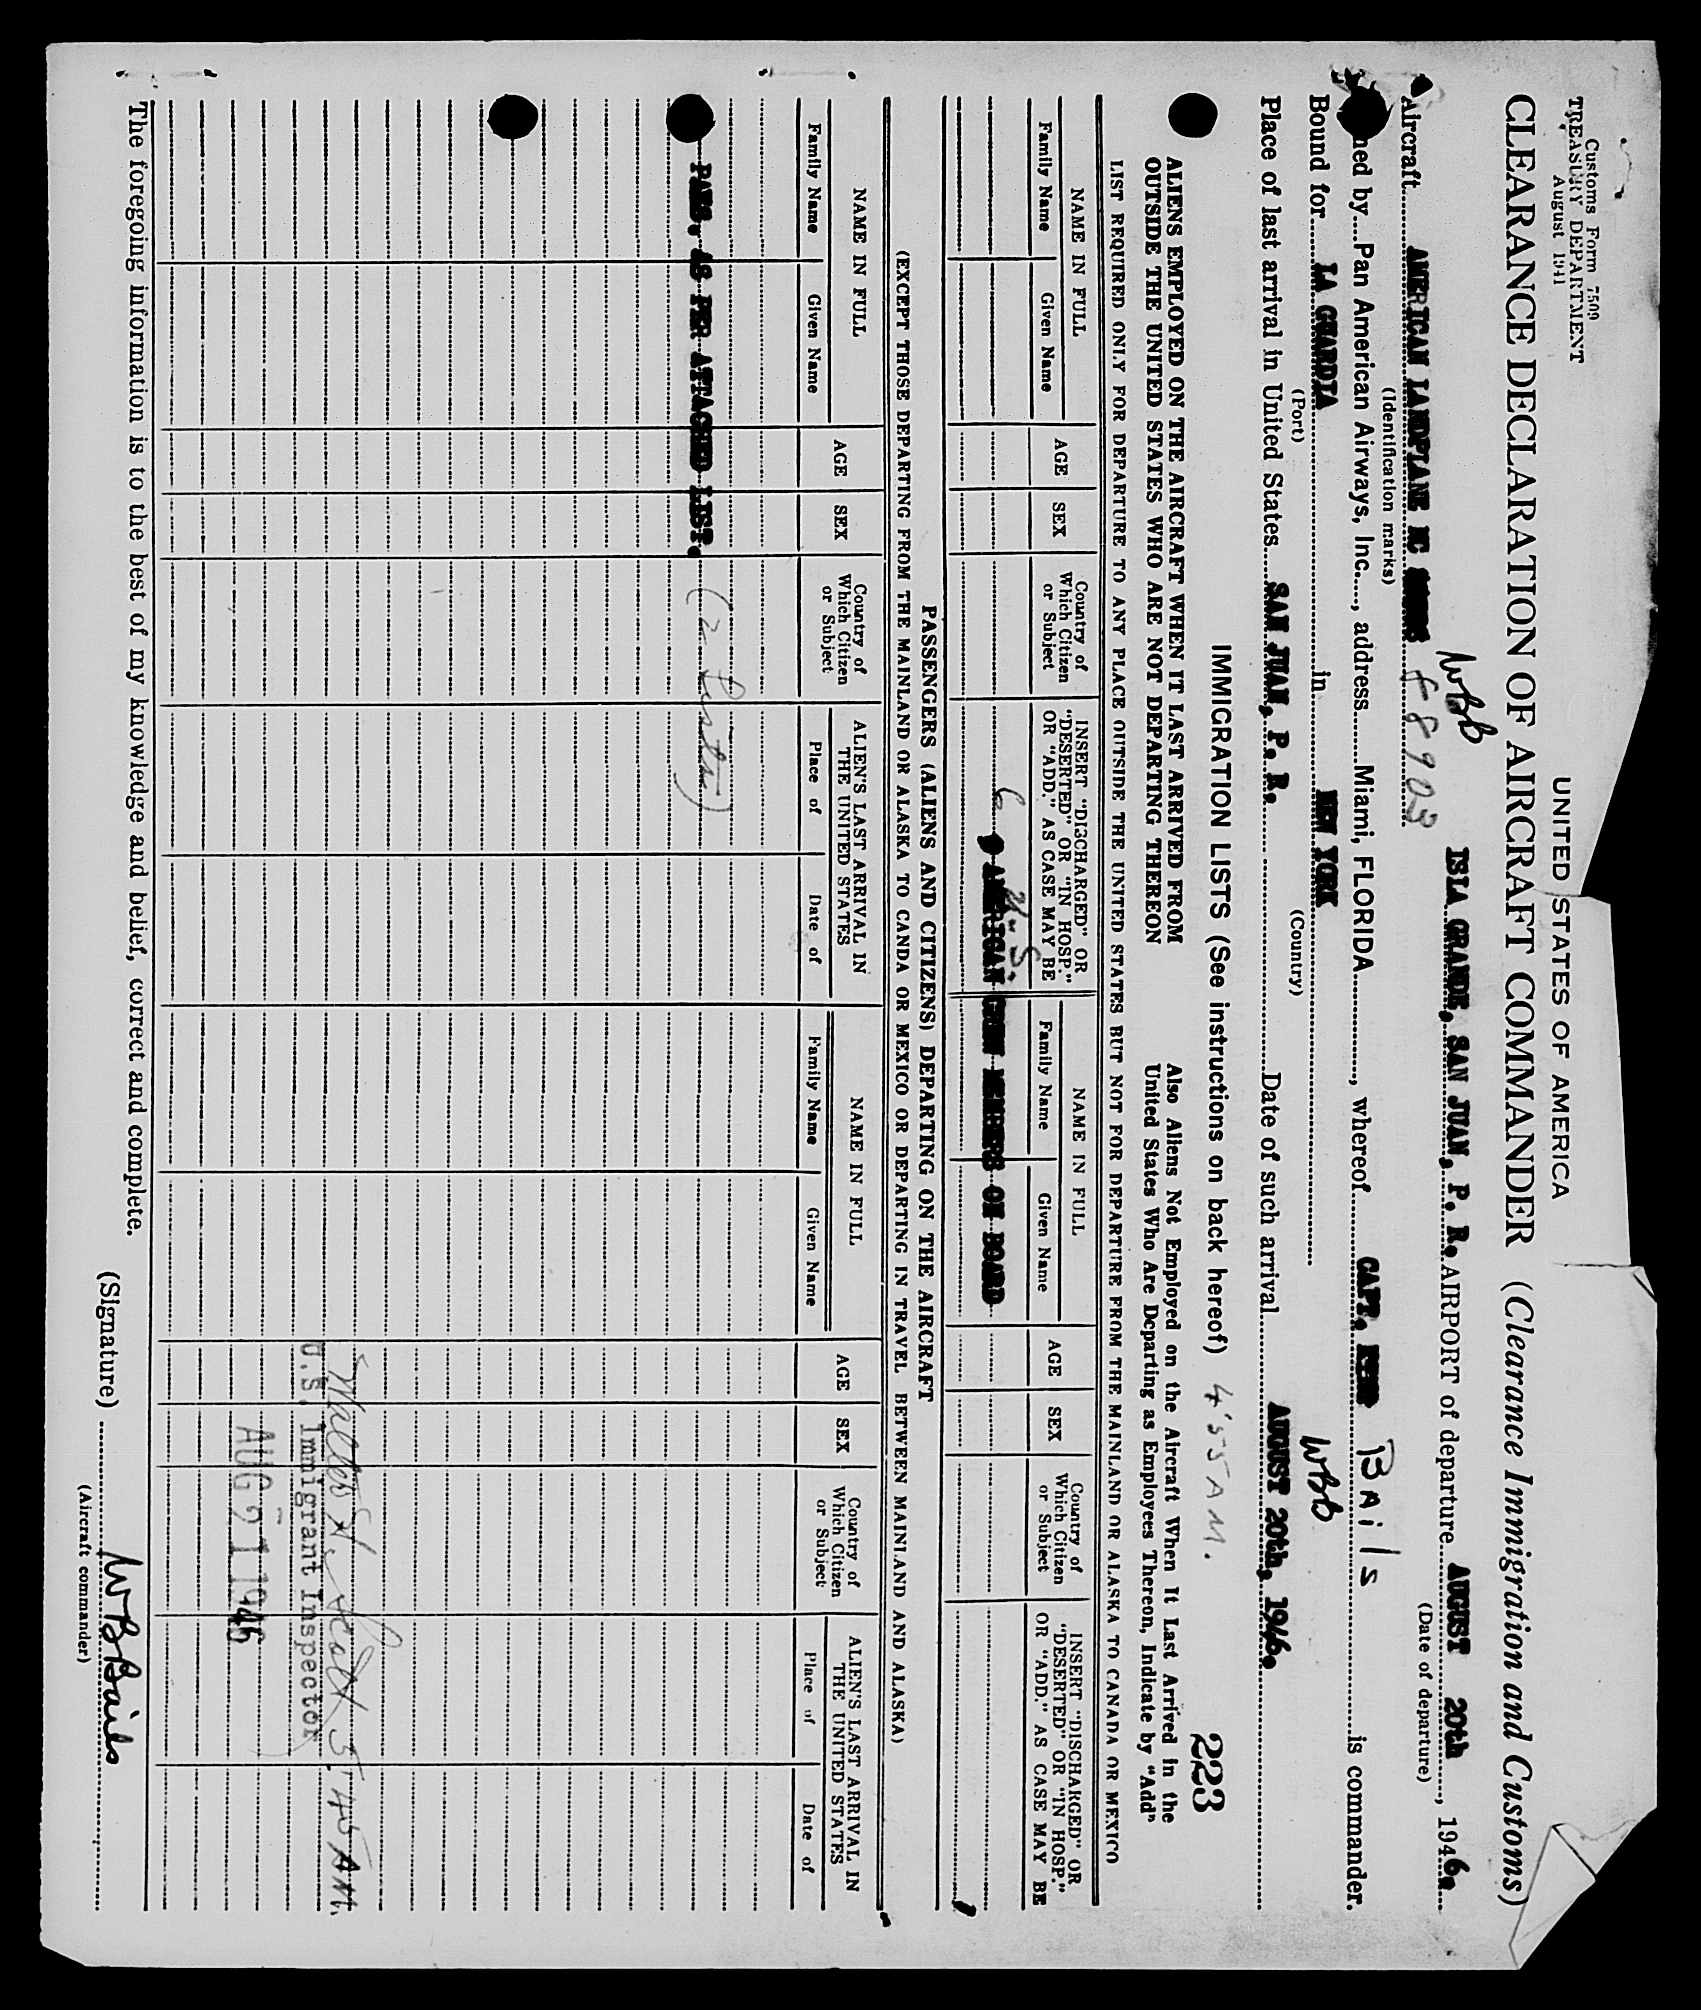 Customs Form 7509
TREASURY DEPARTMENT
August 1941
UNITED STATES OF AMERICA
CLEARANCE DECLARATION OF AIRCRAFT COMMANDER (Clearance Immigration and Customs)
WBB
ISLA GRANDE, SAN JUAN, P. R. AIRPORT of departure AUGUST 20th, 1946.
(Date of departure)
Aircraft AMERICAN LANDPLANE NC 88903
(Identification marks)
ned by Pan American Airways, Inc., address Miami, FLORIDA, whereof CAPT. Bails is commander.
Bound for LA GUARDIA in NEW YORK
WBB
(Port) (Country)
Place of last arrival in United States SAN JUAN, P. R. Date of such arrival AUGUST 20th, 1946.
IMMIGRATION LISTS (See instructions on back hereof) 4:55 AM. 223
ALIENS EMPLOYED ON THE AIRCRAFT WHEN IT LAST ARRIVED FROM OUTSIDE THE UNITED STATES WHO ARE NOT DEPARTING THEREON
Also Aliens Not Employed on the Aircraft When It Last Arrived in the United States Who Are Departing as Employees Thereon, Indicate by "Add"
LIST REQUIRED ONLY FOR DEPARTURE TO ANY PLACE OUTSIDE THE UNITED STATES BUT NOT FOR DEPARTURE FROM THE MAINLAND OR ALASKA TO CANADA OR MEXICO
NAME IN FULL
Family Name Given Name
AGE
SEX
Country of Which Citizen or Subject
INSERT "DISCHARGED" OR "DESERTED" OR "IN HOSP." OR "ADD." AS CASE MAY BE
NAME IN FULL
Family Name Given Name
AGE
SEX
Country of Which Citizen or Subject
INSERT "DISCHARGED" OR "DESERTED" OR "IN HOSP." OR "ADD." AS CASE MAY BE
U. S.
6 AMERICAN CREW MEMBERS ON BOARD
PASSENGERS (ALIENS AND CITIZENS) DEPARTING ON THE AIRCRAFT
(EXCEPT THOSE DEPARTING FROM THE MAINLAND OR ALASKA TO CANDA OR MEXICO OR DEPARTING IN TRAVEL BETWEEN MAINLAND AND ALASKA)
NAME IN FULL
Family Name Given Name
AGE
SEX
Country of Which Citizen or Subject
ALIEN'S LAST ARRIVAL IN THE UNITED STATES
Place of Date of
NAME IN FULL
Family Name Given Name
AGE
SEX
Country of Which Citizen or Subject
ALIEN'S LAST ARRIVAL IN THE UNITED STATES
Place of Date of
PAXS, AS PER ATTACHED LIST. (2 Lists)
Walter H. Scott 5:45 AM.
U.S. Immigrant Inspector
AUG 21 1946
The foregoing information is to the best of my knowledge and belief, correct and complete.
(Signature) WBBails
(Aircraft commander)